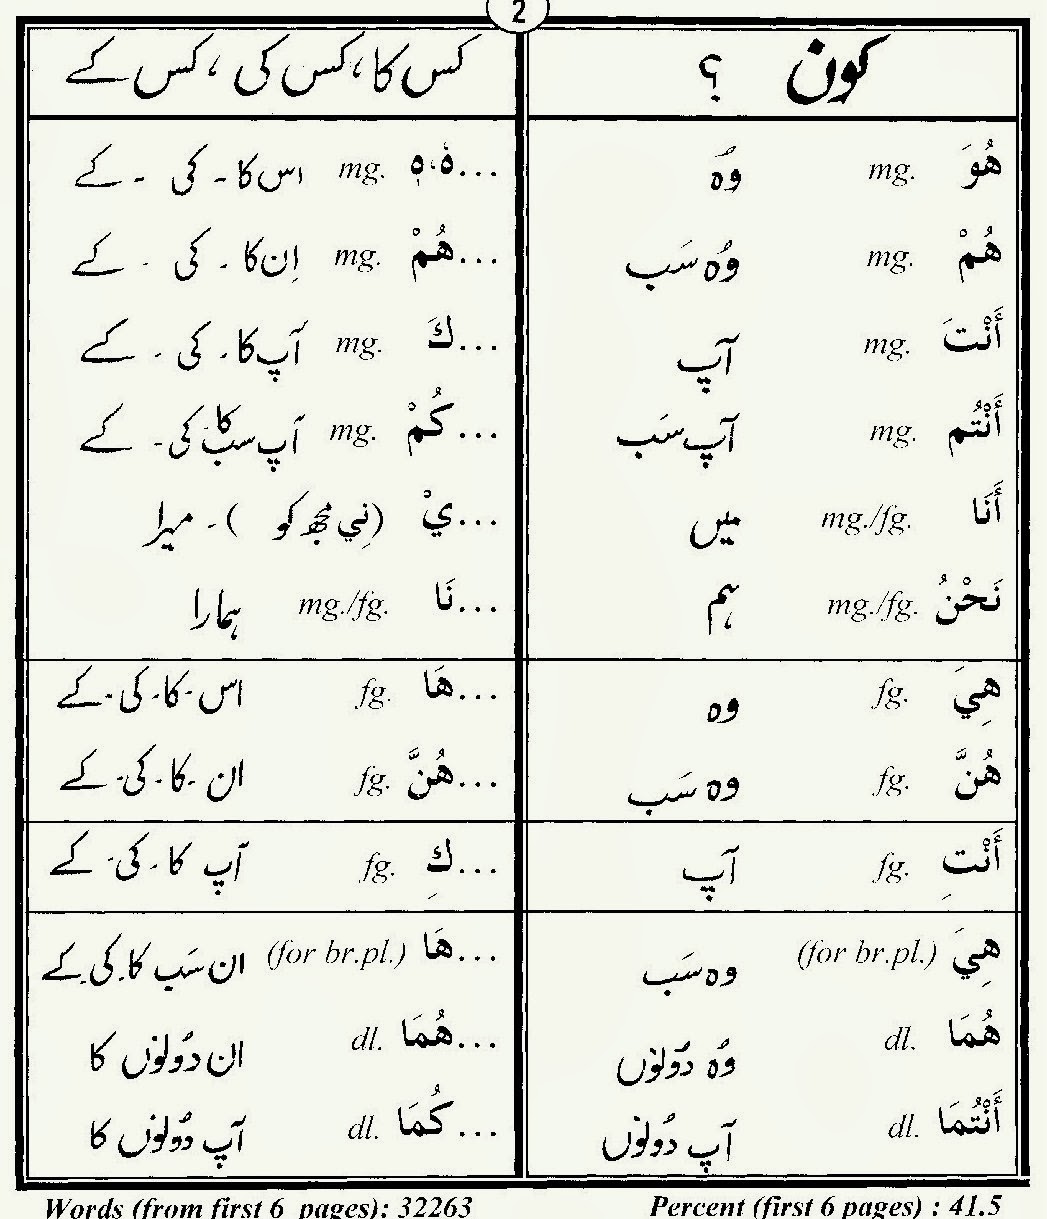 2
کون ؟
هُوَ mg. وُہ
هُمْ mg. وُہ سَب
أَنْتَ mg. آپ
أَنْتُم mg. آپ سَب
أَنَا mg./fg. میں
نَحْنُ mg./fg. ہم
هِيَ fg. وہ
هُنَّ fg. وہ سَب
أَنْتِ fg. آپ
هِيَ (for br.pl.) وہ سَب
هُمَا dl. وُہ دُولوٗں
أَنْتُمَا dl. آپ دُولوٗں
کس کا، کس کی، کس کے
...هٗ، هٖ mg. اس کا - کی - کے
...هُمْ mg. اِن کا - کی - کے
...كَ mg. آپ کا - کی - کے
...كُمْ mg. آپ سب کا کی - کے
...يْ (نِي مجھ کو) - میرا
...نَا mg./fg. ہمارا
...هَا fg. اس - کا - کی - کے
...هُنَّ fg. ان - کا - کی - کے
...كِ fg. آپ کا - کی - کے
...هَا (for br.pl.) ان سَب کا کی کے
...هُمَا dl. ان دُولوٗں کا
...كُمَا dl. آپ دُولوٗں کا
Words (from first 6 pages): 32263 Percent (first 6 pages) : 41.5